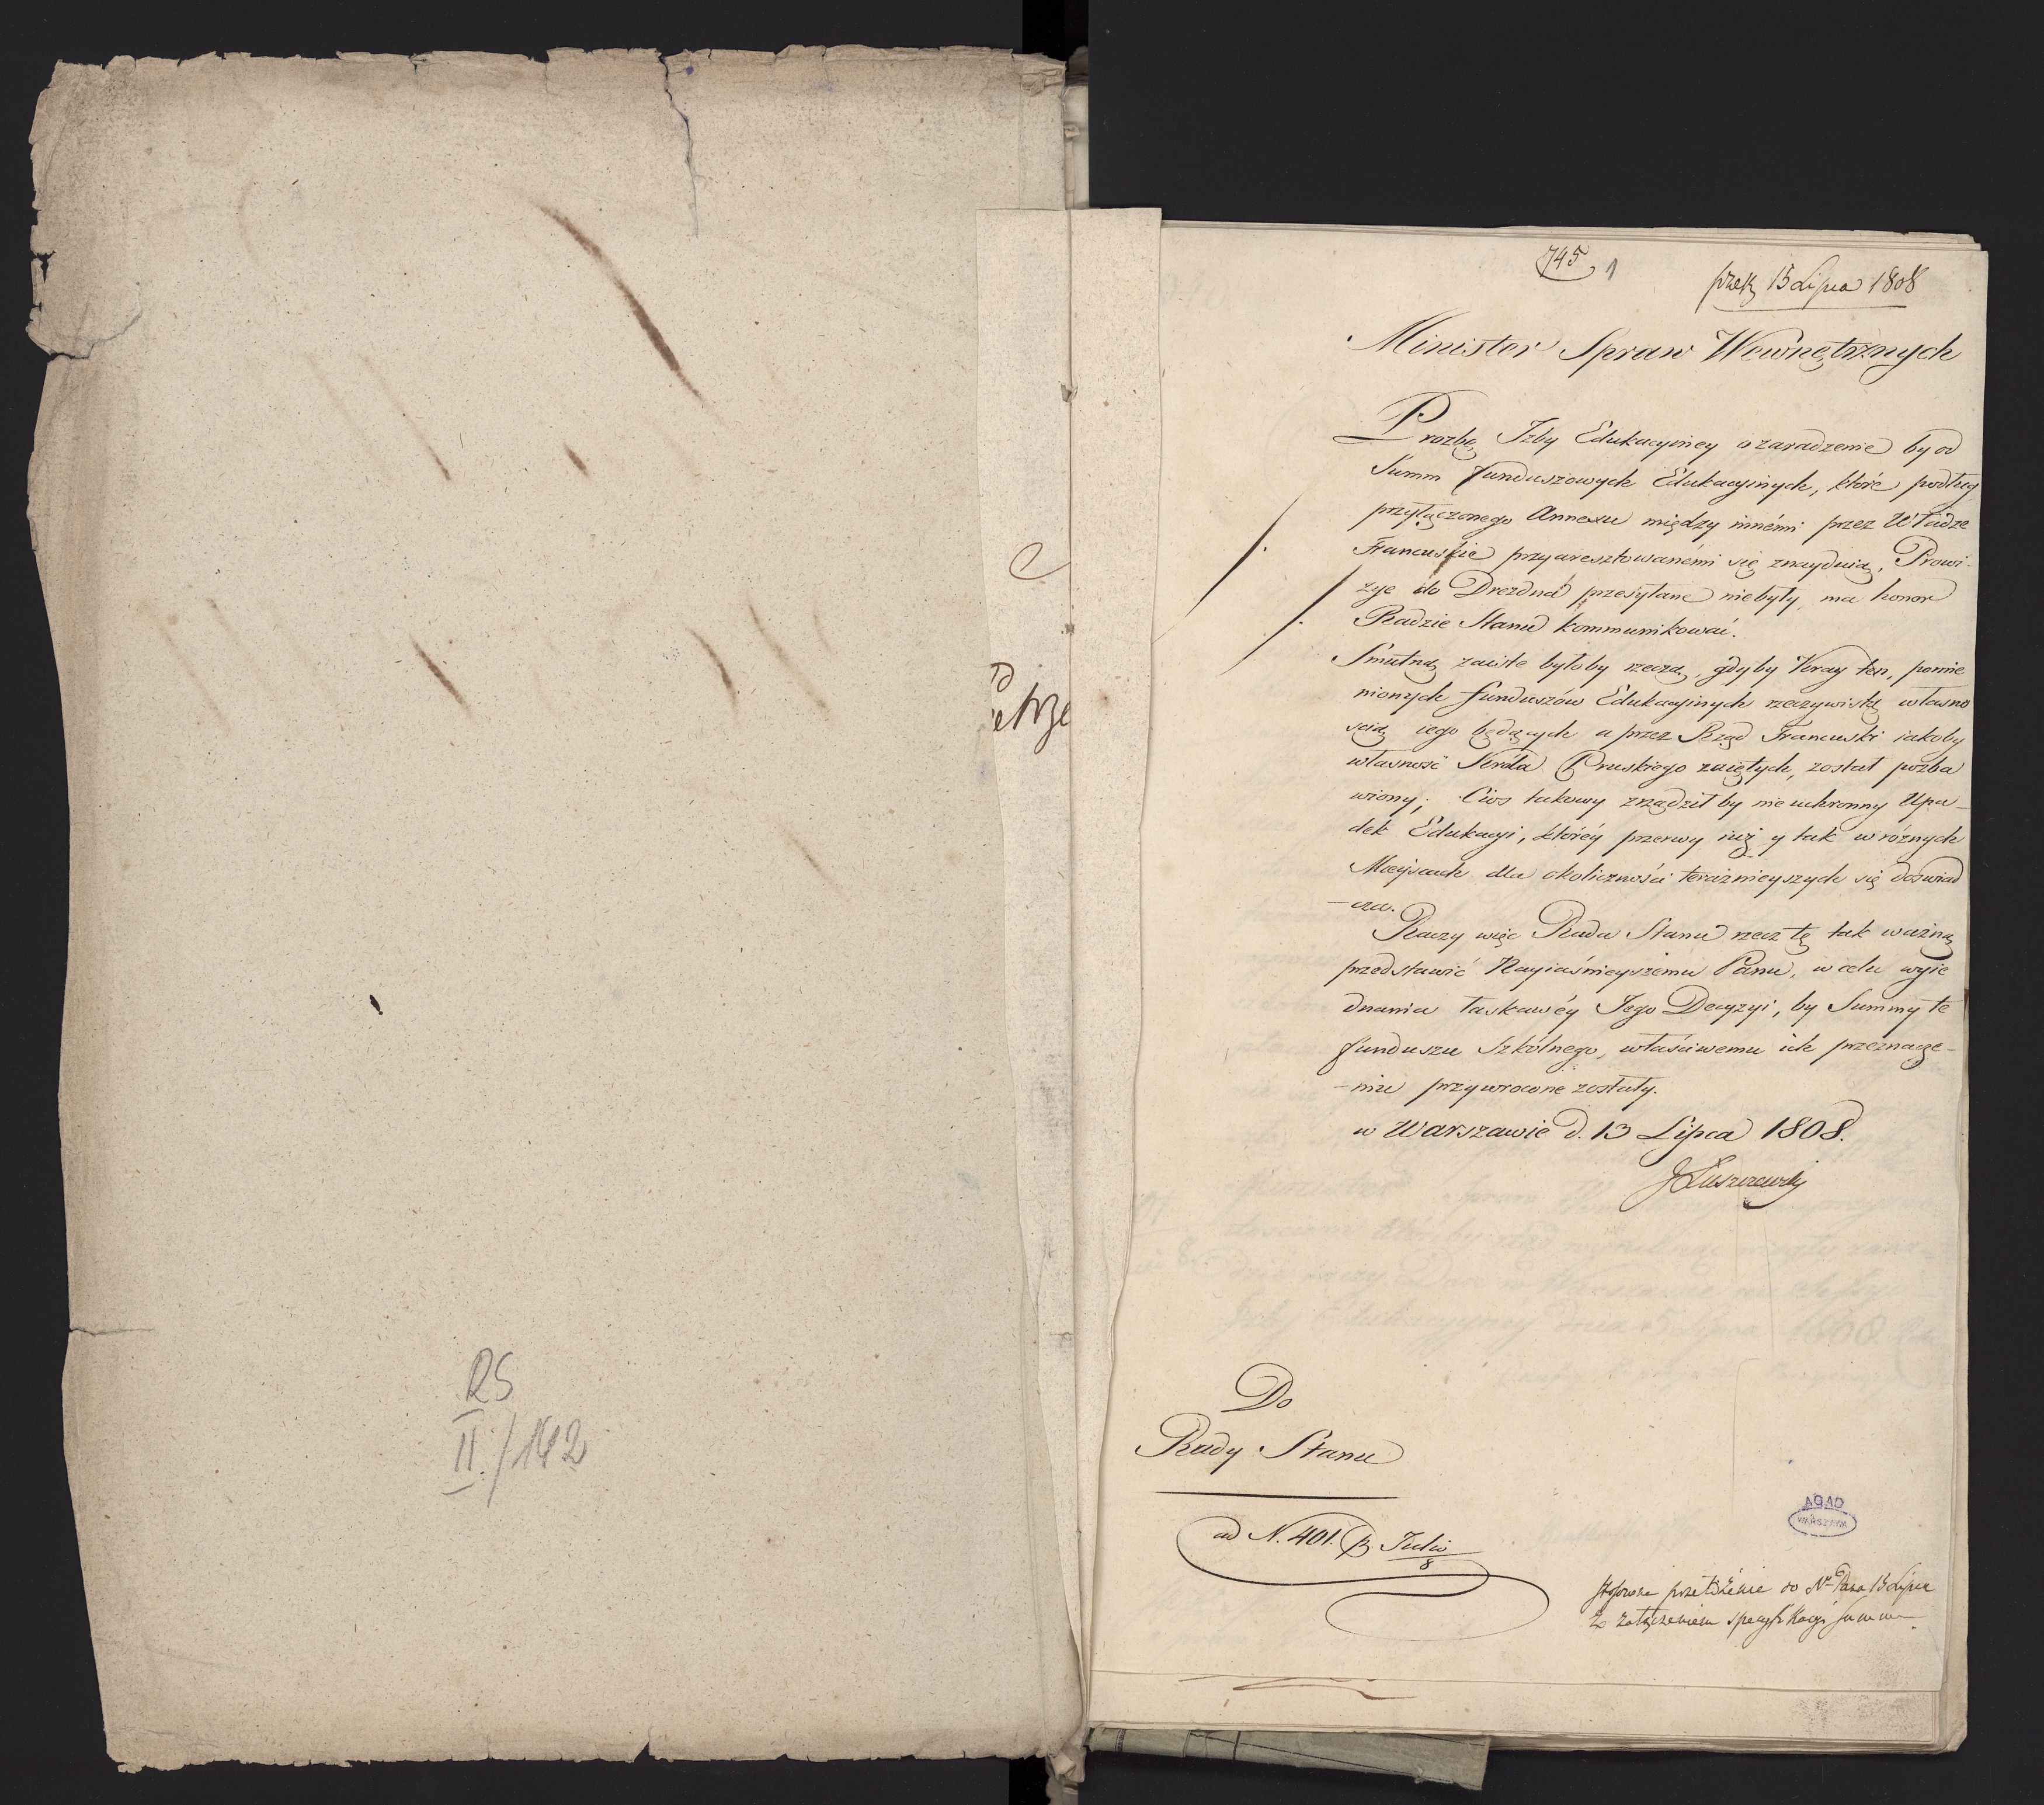 RS
II./142
e
etrze
745
1
15 Lipca 1808
Minister Spraw Wewnętrznych
Prozbę Izby Edukacyiney o zaradzenie by od
Summ funduszowych Edukacyinych, które podług
przyłączonego Annexu między innémi przez Władze
Francuskie przyaresztowanémi się znayduią, Prowi-
zye do Drezdna przesyłane niebyły, ma honor
Radzie Stanu kommunikować.
Smutną zaiste byłoby rzeczą, gdyby Kray ten, pomie
nionych funduszów Edukacyinych rzeczywistą własno
scią iego będących a przez Rząd Francuski iakoby
własność Króla Pruskiego zaiętych, został pozba
wiony; Cios takowy zrządził by nieuchronny Upa-
dek Edukacyi, któréy przerwy iuż y tak w różnych
Mieyscach dla okoliczności teraźnieyszych się doświad
-cza.
Raczy więc Rada Stanu rzecz tę tak ważną
przedstawić Nayiaśnieyszemu Panu, w celu wyie
dnania łaskawéy Jego Decyzyi, by Summy te
funduszu Szkólnego, właściwemu ich przeznacze-
-niu przywrocone zostały.
w Warszawie d. 13 Lipca 1808.
J Łuszczewski
Do
Rady Stanu
ad N. 401. Julio
8
AGAD
WARSZAWA
Stosowne przełożenie do Nº Pana 15 Lipca
z załączeniem specyfikacyi summ.